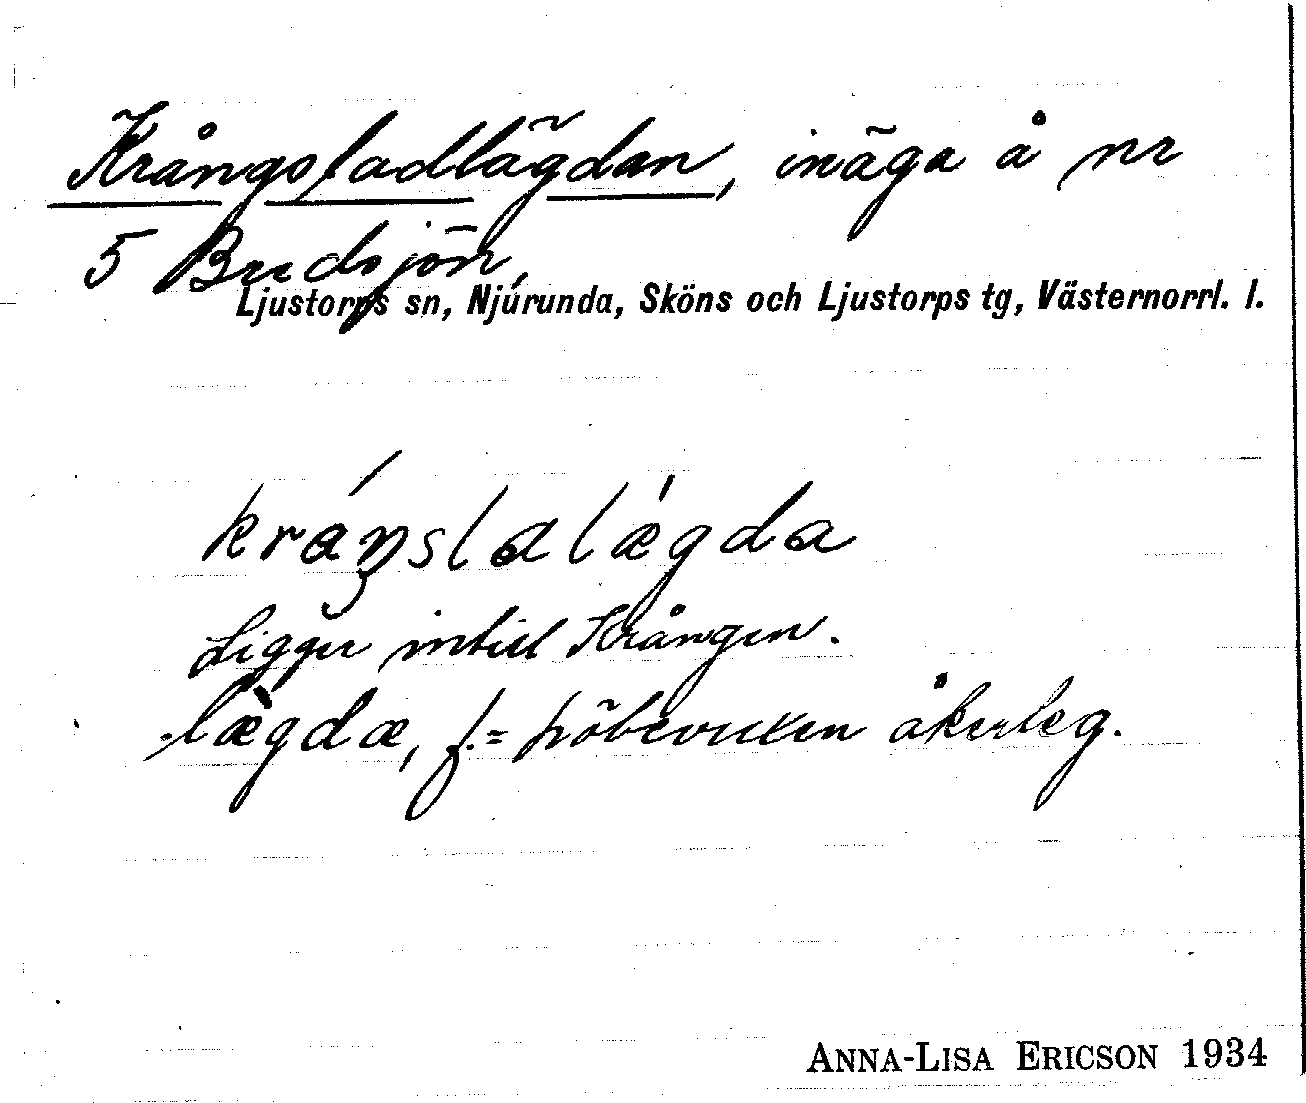 Krångsladlägdan, inäga å nr
5 Bredsjön,
Ljustorps sn, Njurunda, Sköns och Ljustorps tg, Västernorrl. l.
kráŋslalǽgda
Ligger intill Krången.
-lægdæ, f. = höbevuxen åkerteg.
ANNA-LISA ERICSON 1934